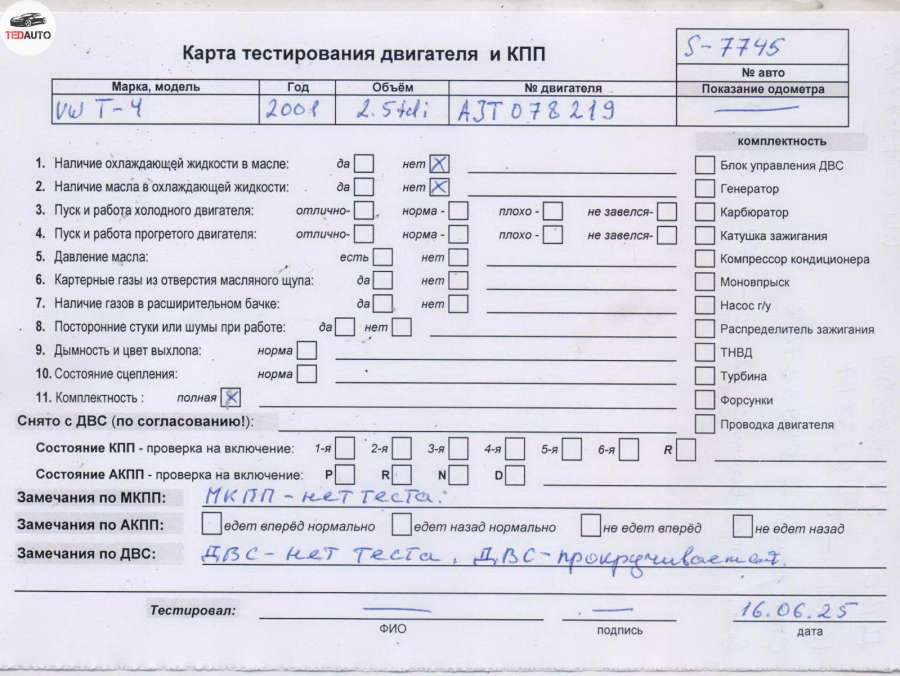 TEDAUTO
Карта тестирования двигателя и КПП
S-7745
№ авто
Марка, модель Год Объём № двигателя Показание одометра
VW T-4 2001 2.5tdi AJT 078219 —
комплектность
1. Наличие охлаждающей жидкости в масле: да нет X
Блок управления ДВС
2. Наличие масла в охлаждающей жидкости: да нет X
Генератор
3. Пуск и работа холодного двигателя: отлично- норма - плохо - не завелся-
Карбюратор
4. Пуск и работа прогретого двигателя: отлично- норма - плохо - не завелся-
Катушка зажигания
5. Давление масла: есть нет
Компрессор кондиционера
6. Картерные газы из отверстия масляного щупа: да нет
Моновпрыск
7. Наличие газов в расширительном бачке: да нет
Насос г/у
8. Посторонние стуки или шумы при работе: да нет
Распределитель зажигания
9. Дымность и цвет выхлопа: норма
ТНВД
10. Состояние сцепления: норма
Турбина
11. Комплектность : полная X
Форсунки
Снято с ДВС (по согласованию!):
Проводка двигателя
Состояние КПП - проверка на включение: 1-я 2-я 3-я 4-я 5-я 6-я R
Состояние АКПП - проверка на включение: P R N D
Замечания по МКПП: МКПП - нет теста.
Замечания по АКПП: едет вперёд нормально едет назад нормально не едет вперёд не едет назад
Замечания по ДВС: ДВС - нет теста. ДВС - прокручивается.
Тестировал: — — 16.06.25
ФИО подпись дата